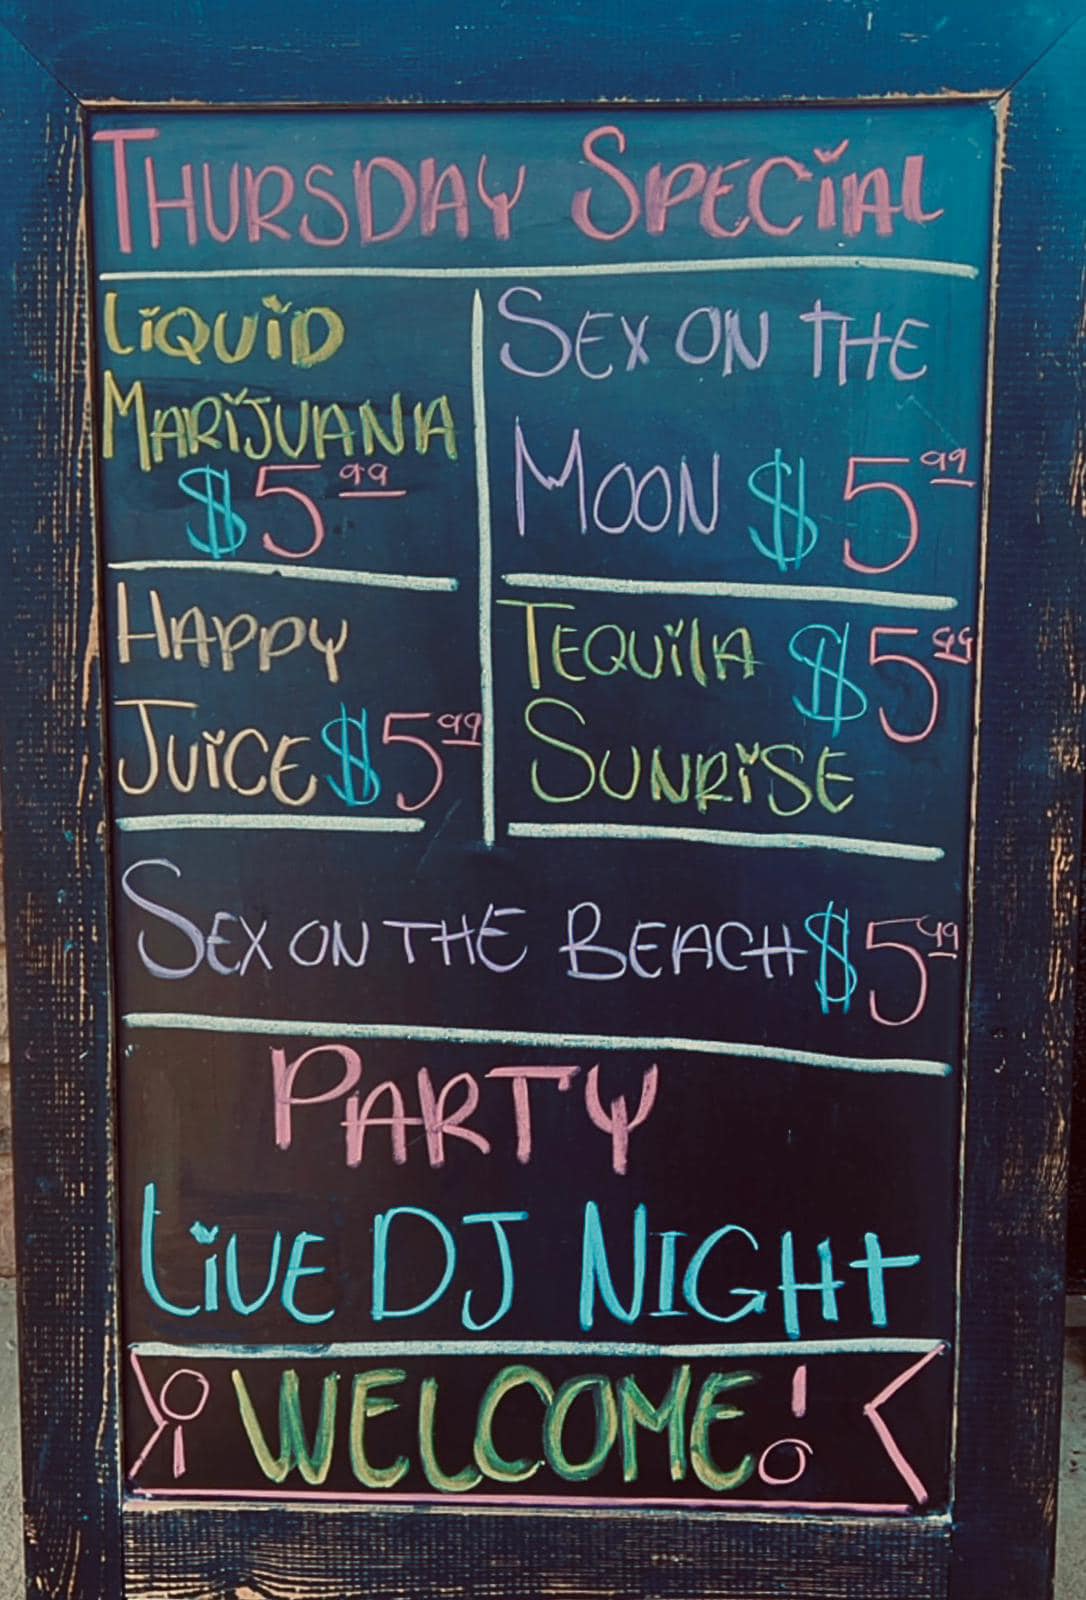 THURSDAY SPECIAL
LIQUID
MARIJUANA
$5.99
SEX ON THE
MOON $5.99
HAPPY
JUICE $5.99
TEQUILA $5.99
SUNRISE
SEX ON THE BEACH $5.99
PARTY
LIVE DJ NIGHT
¡WELCOME!